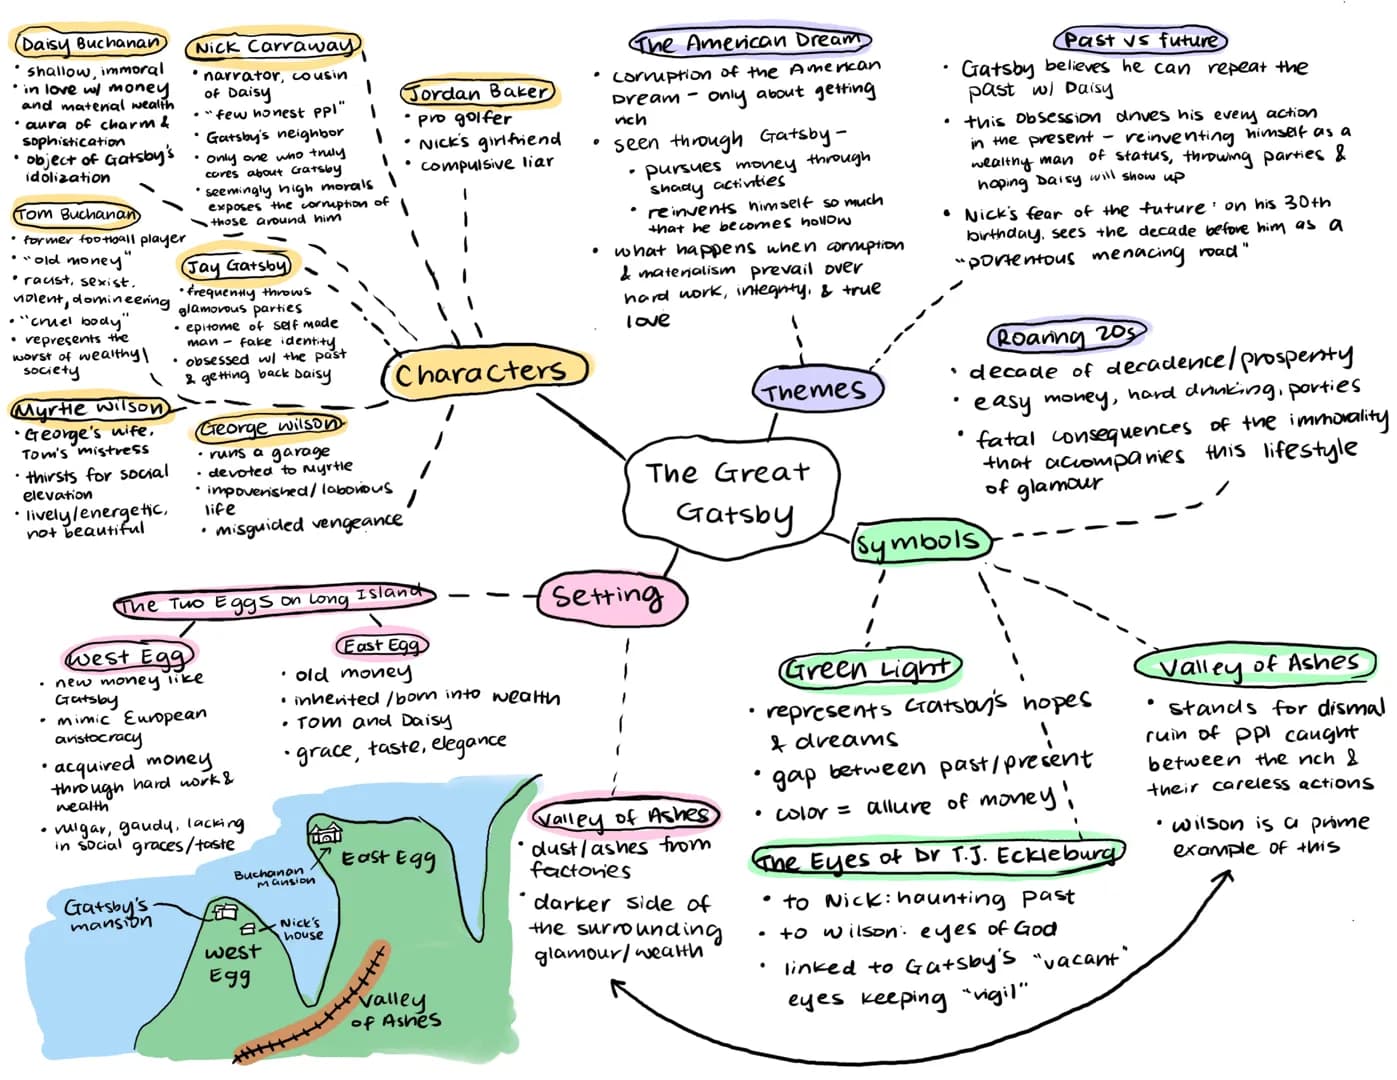 Daisy Buchanan
• shallow, immoral
• in love w/ money
and material wealth
• aura of charm &
sophistication
• object of Gatsby's
idolization
Nick Carraway
• narrator, cousin
of Daisy
• "few honest ppl"
• Gatsby's neighbor
• only one who truly
cares about Gatsby
• seemingly high morals
exposes the corruption of
those around him
Jordan Baker
• pro golfer
• Nick's girlfriend
• compulsive liar
Tom Buchanan
• former football player
• "old money"
• racist, sexist,
violent, domineering
• "cruel body"
• represents the
worst of wealthy
society
Jay Gatsby
• frequently throws
glamorous parties
• epitome of self made
man – fake identity
• obsessed w/ the past
& getting back Daisy
Myrtle Wilson
• George's wife,
Tom's mistress
• thirsts for social
elevation
• lively/energetic,
not beautiful
George Wilson
• runs a garage
• devoted to Myrtle
• impoverished/laborious
life
• misguided vengeance
Characters
The American Dream
• corruption of the American
Dream – only about getting
rich
• seen through Gatsby –
• pursues money through
shady activities
• reinvents himself so much
that he becomes hollow
• what happens when corruption
& materialism prevail over
hard work, integrity, & true
love
Past vs future
• Gatsby believes he can repeat the
past w/ Daisy
• this obsession drives his every action
in the present – reinventing himself as a
wealthy man of status, throwing parties &
hoping Daisy will show up
• Nick's fear of the future: on his 30th
birthday, sees the decade before him as a
"portentous menacing road"
Themes
Roaring 20s
• decade of decadence/prosperity
• easy money, hard drinking, parties
• fatal consequences of the immorality
that accompanies this lifestyle
of glamour
The Great
Gatsby
Symbols
Setting
The Two Eggs on Long Island
West Egg
• new money like
Gatsby
• mimic European
aristocracy
• acquired money
through hard work &
wealth
• vulgar, gaudy, lacking
in social graces/taste
East Egg
• old money
• inherited/born into wealth
• Tom and Daisy
• grace, taste, elegance
Valley of Ashes
• dust/ashes from
factories
• darker side of
the surrounding
glamour/wealth
Green Light
• represents Gatsby's hopes
& dreams
• gap between past/present
• color = allure of money
The Eyes of Dr T.J. Eckleburg
• to Nick: haunting past
• to Wilson: eyes of God
• linked to Gatsby's "vacant"
eyes keeping "vigil"
Valley of Ashes
• stands for dismal
ruin of ppl caught
between the rich &
their careless actions
• Wilson is a prime
example of this
East Egg
Buchanan
mansion
Gatsby's
mansion
Nick's
house
West
Egg
Valley
of Ashes